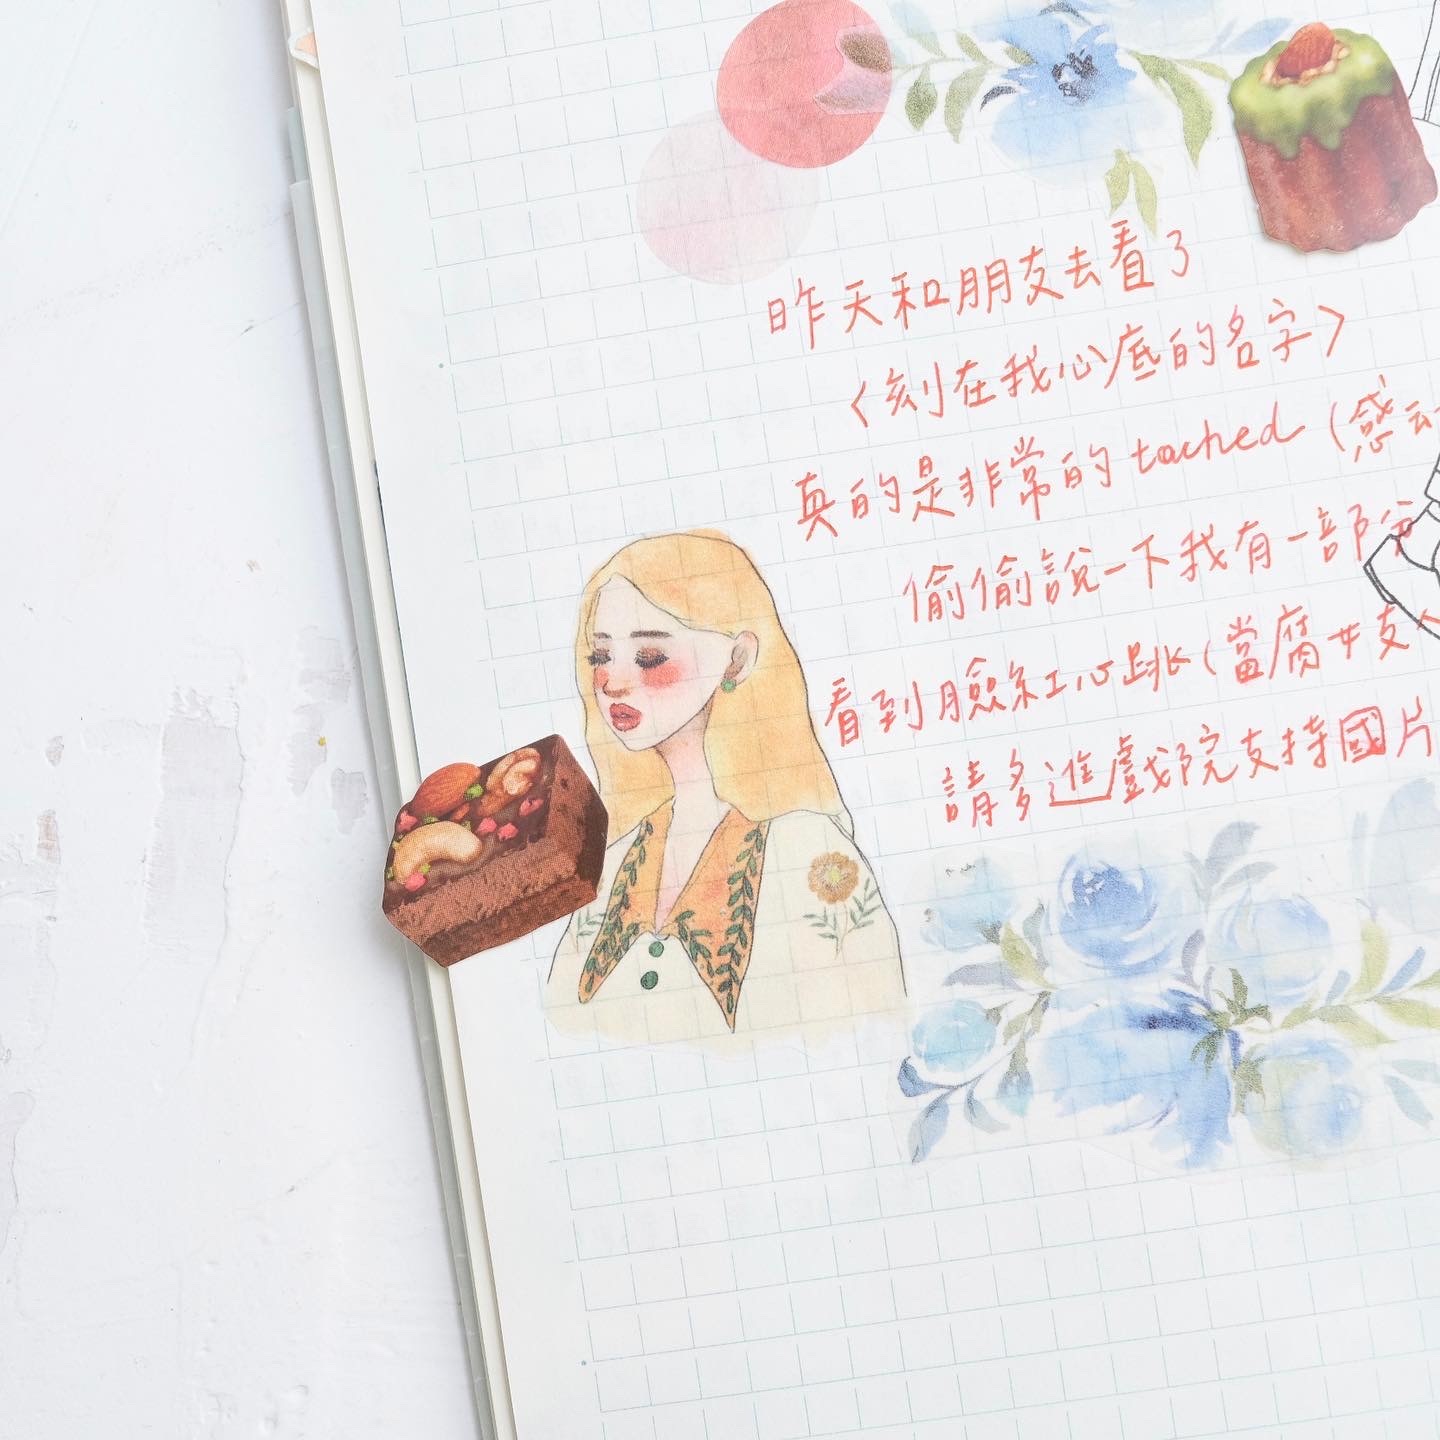 昨天和朋友去看了
〈刻在我心底的名字〉
真的是非常的 toched (感
偷偷說一下我有一部分
看到臉紅心跳(當腐女支
請多進戲院支持國片